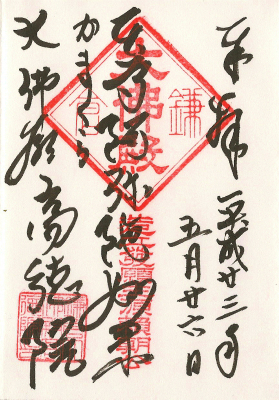 奉拝 平成廿三年
五月廿六日
本尊阿弥陀如来
かまくら
大佛殿 高徳院
鎌倉
大佛殿